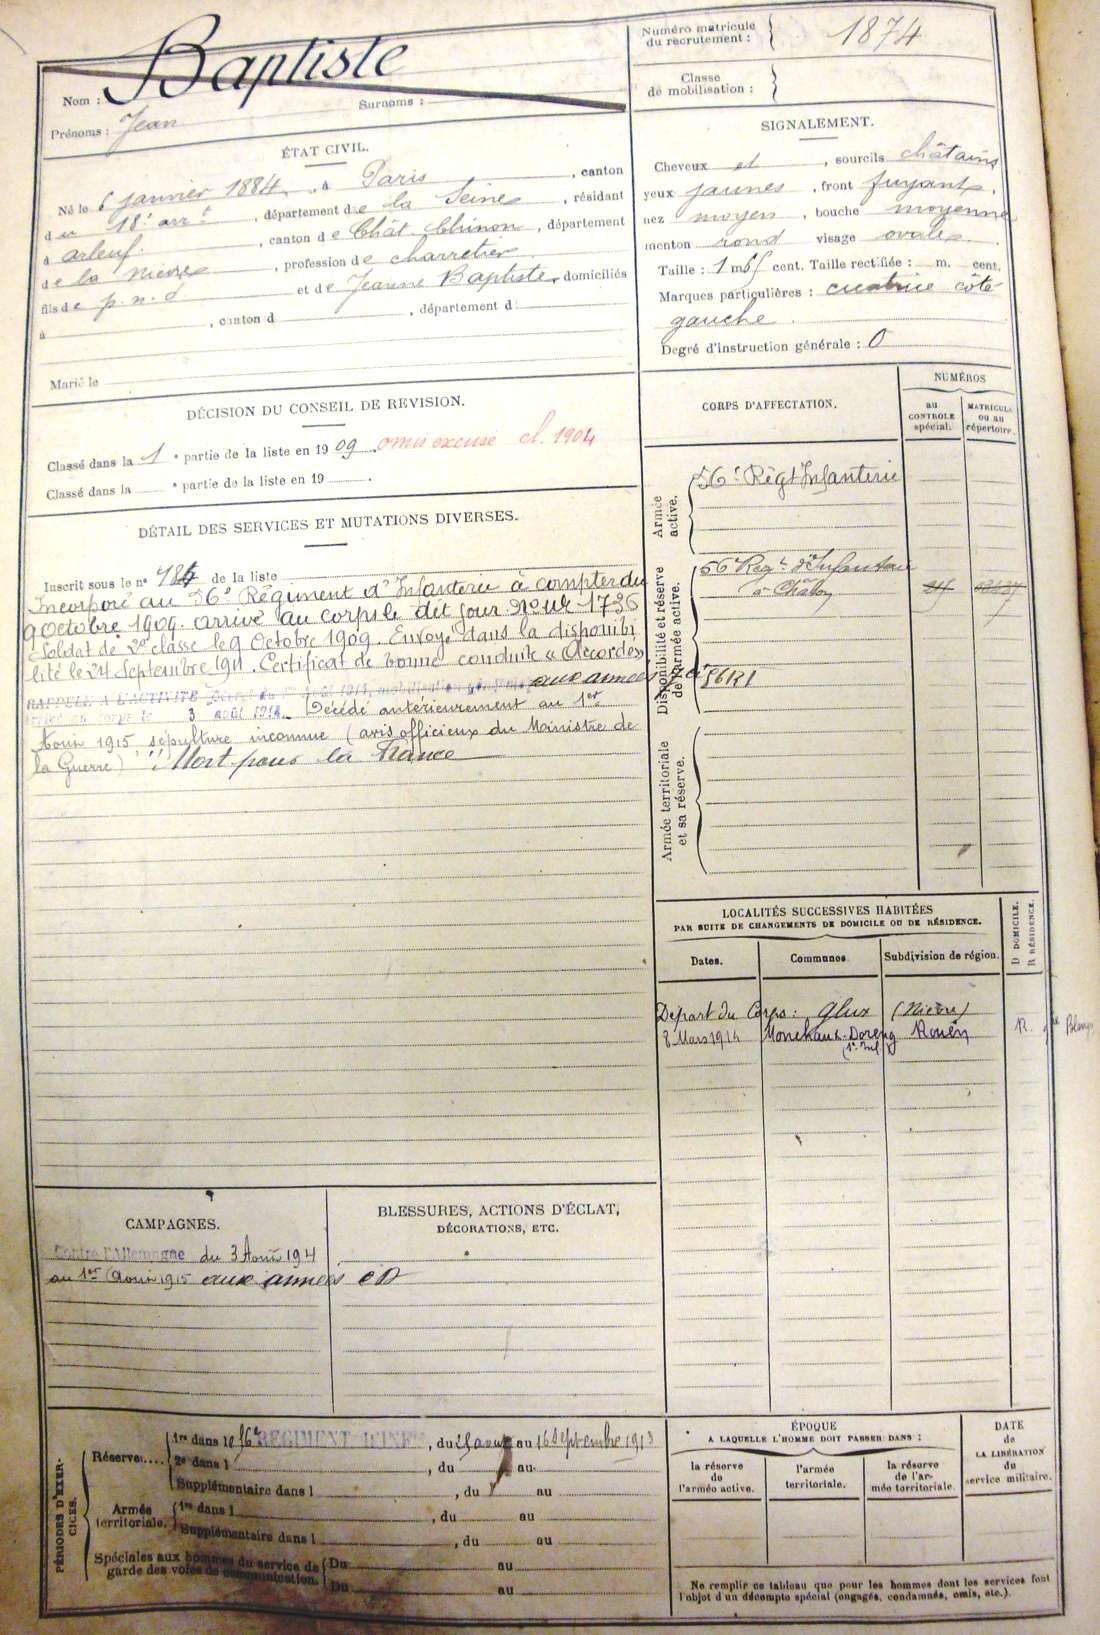 Nom : Baptiste
Surnoms :
Prénoms : Jean
Numéro matricule du recrutement : 1874
Classe de mobilisation :
ÉTAT CIVIL.
Né le 6 janvier 1884, à Paris, canton
du 18e arrt, département de la Seine, résidant
à Arleuf, canton de Chât. Chinon, département
de la Nièvre, profession de charretier
fils de p. n. d. et de Jeanne Baptiste, domiciliés
à , canton d , département d
Marié le
SIGNALEMENT.
Cheveux et , sourcils châtains
yeux jaunes, front fuyant,
nez moyen, bouche moyenne
menton rond visage ovale.
Taille : 1 m cent. Taille rectifiée : m. cent.
Marques particulières : cicatrice côté
gauche.
Degré d'instruction générale : 0
DÉCISION DU CONSEIL DE REVISION.
Classé dans la 1 e partie de la liste en 1909. omis excusé cl. 1904
Classé dans la e partie de la liste en 19 .
DÉTAIL DES SERVICES ET MUTATIONS DIVERSES.
Inscrit sous le no de la liste
Incorporé au 56e Régiment d'Infanterie à compter du
9 Octobre 1909. arrivé au corps le dit jour No Mle 1736
Soldat de 2e classe le 9 Octobre 1909. Envoyé dans la disponibi
lité le 24 Septembre 1911. Certificat de bonne conduite « Accordé »
RAPPELÉ A L'ACTIVITÉ aux armées
3 août 1914. Décédé antérieurement au 1er
Aout 1915 sépulture inconnue (avis officieux du Ministre de
la Guerre) "Mort pour la France
CORPS D'AFFECTATION.
NUMÉROS
au CONTROLE spécial.
MATRICULE ou au répertoire.
Armée active.
56e Régt Infanterie
Disponibilité et réserve de l'armée active.
56e Régt d'Infanterie
à Châlon
Armée territoriale et sa réserve.
LOCALITÉS SUCCESSIVES HABITÉES
PAR SUITE DE CHANGEMENTS DE DOMICILE OU DE RÉSIDENCE.
D DOMICILE.
R RÉSIDENCE.
Dates.
Communes.
Subdivision de région.
Départ du Corps : Glux (Nièvre)
8 Mars 1914 Rouen R.
CAMPAGNES.
Contre l'Allemagne du 3 Août 1914
au 1er Aout 1915 aux armées CD
BLESSURES, ACTIONS D'ÉCLAT,
DÉCORATIONS, ETC.
PÉRIODES D'EXERCICES.
Réserve....
1re dans le 56e RÉGIMENT D'INFie, du au 16 septembre 1913
2e dans l , du au
Supplémentaire dans l , du au
Armée territoriale.
1re dans l , du au
Supplémentaire dans l , du au
Spéciales aux hommes du service de garde des voies de communication.
Du au
Du au
ÉPOQUE
A LAQUELLE L'HOMME DOIT PASSER DANS :
la réserve de l'armée active.
l'armée territoriale.
la réserve de l'armée territoriale.
DATE de LA LIBÉRATION du service militaire.
Ne remplir ce tableau que pour les hommes dont les services font
l'objet d'un décompte spécial (engagés, condamnés, omis, etc.).